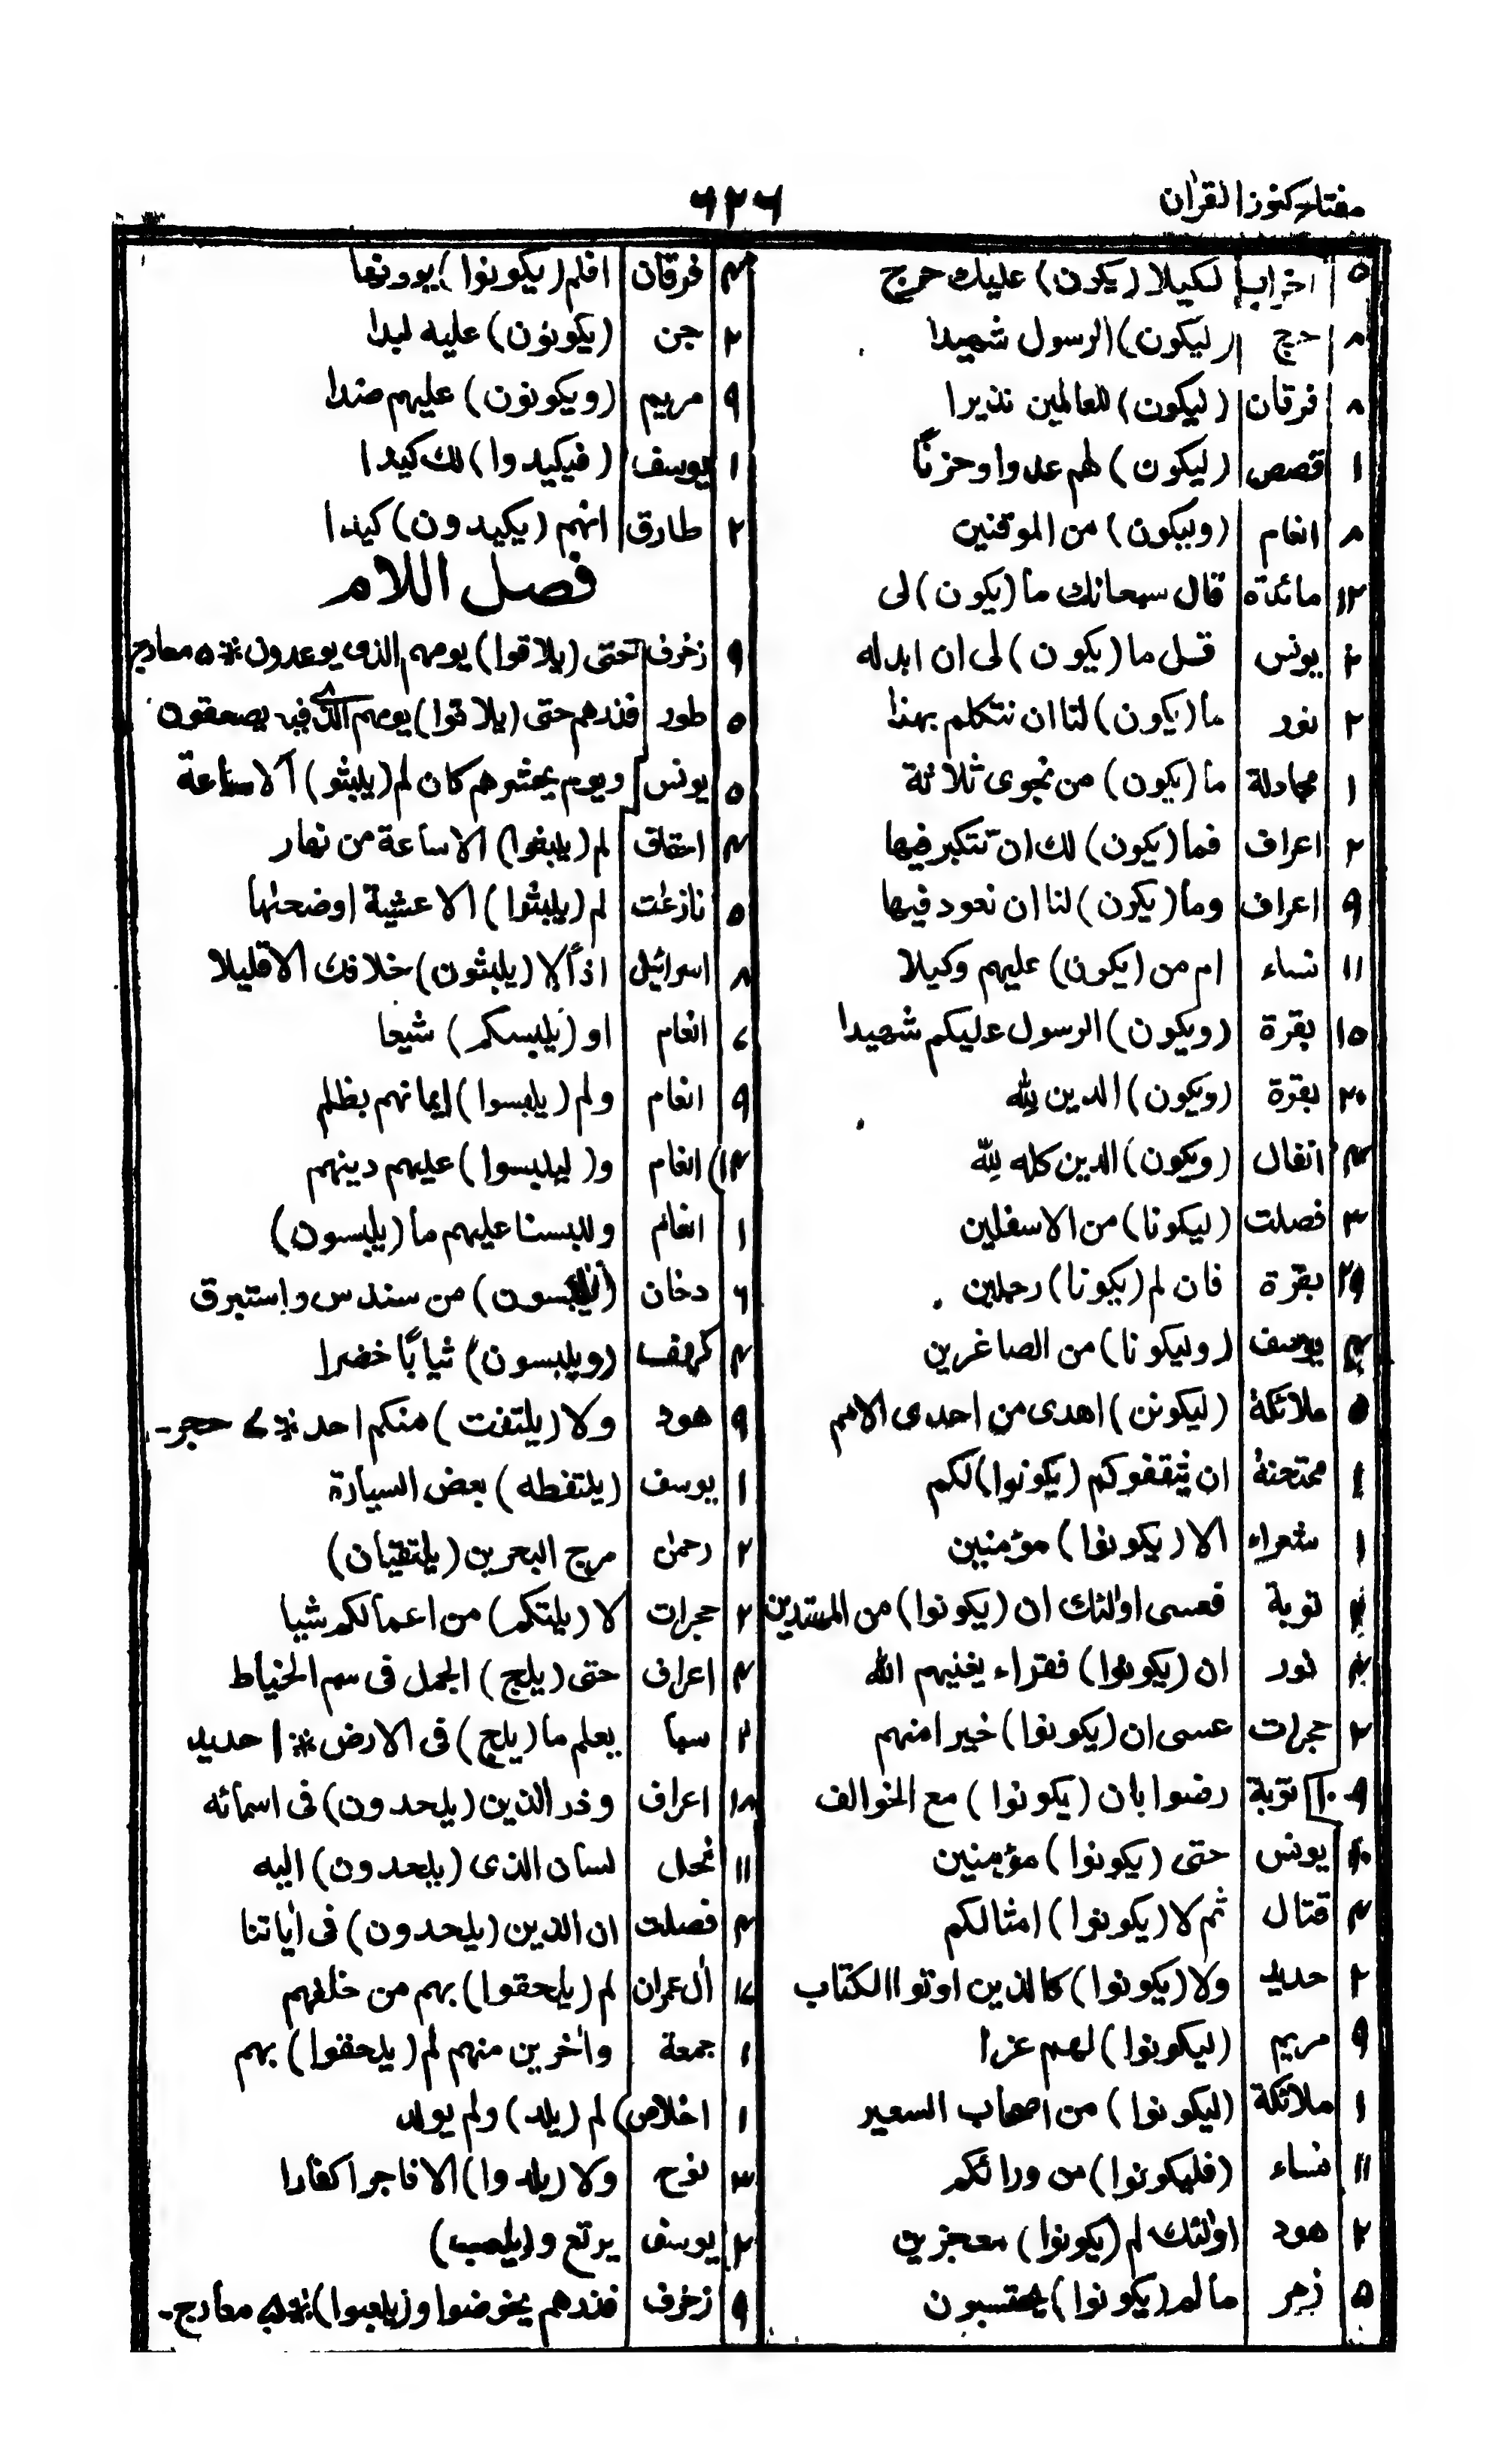 مفتاح كنوز القرآن
٦٢٦
٥ احزاب لكيلا (يكون) عليك حرج
٨ حج (ليكون) الرسول شهيدا
٨ فرقان (ليكون) للعالمين نذيرا
١ قصص (ليكون) لهم عدوا وحزنًا
٨ انعام (وليكون) من الموقنين
١٢ مائدة قال سبحانك ما (يكون) لى
٢ يونس قل ما (يكون) لى ان ابدله
٢ نور ما (يكون) لنا ان نتكلم بهذا
١ مجادلة ما (يكون) من نجوى ثلاثة
٢ اعراف فما (يكون) لك ان تتكبر فيها
٩ اعراف وما (يكون) لنا ان نعود فيها
١١ نساء ام من (يكون) عليهم وكيلا
١٥ بقرة (ويكون) الرسول عليكم شهيدا
٢٠ بقرة (ويكون) الدين لله
٤ انفال (ويكون) الدين كله لله
٣ فصلت (ليكونا) من الاسفلين
٢٩ بقرة فان لم (يكونا) رجلين
٤ يوسف (وليكونا) من الصاغرين
٥ ملائكة (ليكونن) اهدى من احدى الامم
١ ممتحنة ان يثقفوكم (يكونوا) لكم
١ شعراء الا (يكونوا) مؤمنين
توبة فعسى اولئك ان (يكونوا) من المهتدين
٤ نور ان (يكونوا) فقراء يغنيهم الله
٢ حجرات عسى ان (يكونوا) خيرا منهم
٩ـ١٠ توبة رضوا بان (يكونوا) مع الخوالف
١٠ يونس حتى (يكونوا) مؤمنين
٤ قتال ثم لا (يكونوا) امثالكم
٢ حديد ولا (يكونوا) كالذين اوتوا الكتاب
٩ مريم (ليكونوا) لهم عزا
١ ملائكة (ليكونوا) من اصحاب السعير
١١ نساء (فليكونوا) من ورائكم
٢ هود اولئك لم (يكونوا) معجزين
٥ زمر ما لم (يكونوا) يحتسبون
٤ فرقان افلم (يكونوا) يرونها
٢ جن (يكونون) عليه لبدا
٩ مريم (ويكونون) عليهم ضدا
١ يوسف (فيكيدوا) لك كيدا
٢ طارق انهم (يكيدون) كيدا
فصل اللام
٩ زخرف حتى (يلاقوا) يومهم الذى يوعدون * ٥ معارج
٥ طور فذرهم حتى (يلاقوا) يومهم الذى فيه يصعقون
٥ يونس ويوم يحشرهم كان لم (يلبثو) آلا ساعة
٤ احقاف لم (يلبثوا) الا ساعة من نهار
٥ نازعات لم (يلبثوا) الا عشية اوضحها
٨ اسرائيل اذًا لا (يلبثون) خلافك الا قليلا
٧ انعام او (يلبسكم) شيعا
٩ انعام ولم (يلبسوا) ايمانهم بظلم
١٤ انعام و (ليلبسوا) عليهم دينهم
١ انعام وللبسنا عليهم ما (يلبسون)
٦ دخان (يلبسون) من سندس واستبرق
٤ كهف (ويلبسون) ثيابًا خضرا
٩ هود ولا (يلتفت) منكم احد * ٧ حجر-
١ يوسف (يلتقطه) بعض السيارة
٢ رحمن مرج البحرين (يلتقيان)
٢ حجرات لا (يلتكم) من اعمالكم شيا
٤ اعراف حتى (يلج) الجمل فى سم الخياط
٢ سبا يعلم ما (يلج) فى الارض * ١ حديد
١٨ اعراف وذر الذين (يلحدون) فى اسمائه
١١ نحل لسان الذى (يلحدون) اليه
٤ فصلت ان الذين (يلحدون) فى أياتنا
١٧ أل عمران لم (يلحقوا) بهم من خلفهم
١ جمعة وأخرين منهم لم (يلحقوا) بهم
١ اخلاص لم (يلد) ولم يولد
٣ نوح ولا (يلدوا) الا فاجرا كفارا
٢ يوسف يرتع و (يلعب)
٩ زخرف فذرهم يخوضوا و (يلعبوا) * ٥ معارج-